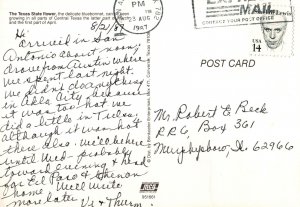 The Texas State flower, the delicate bluebonnet,
growing in all parts of Central Texas the latter part
and the first part of April.
8/21/87
Hi
Arrived in San
Antonio about noon,
drove from Austin where
we spent last night.
We didn't do anything
in Okla City because
it was too hot. We
did a little in Tulsa
although it was hot
there also. We'll be here
until Wed - probably
toward evening & head
for El Paso & then on
home. We'll write
more later
PM
23 AUG
1987
MAIL
CONTACT YOUR LOCAL POST OFFICE
USA
14
POST CARD
Mr. Robert E Beck
R.R.6, Box 361
Murphysboro, Il 62966